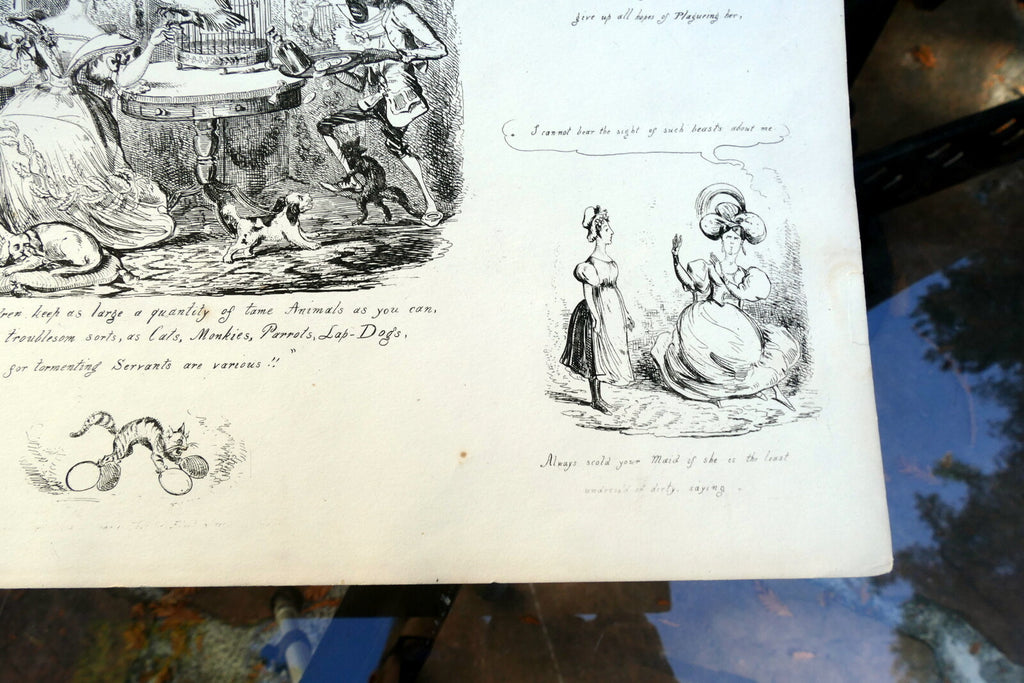 give up all hopes of Plagueing her,
I cannot bear the sight of such beasts about me
ren keep as large a quantity of tame Animals as you can,
troublesom sorts, as Cats, Monkies, Parrots, Lap-Dogs,
for tormenting Servants are various!!"
Always scold your Maid if she is the least
undress'd or dirty, saying